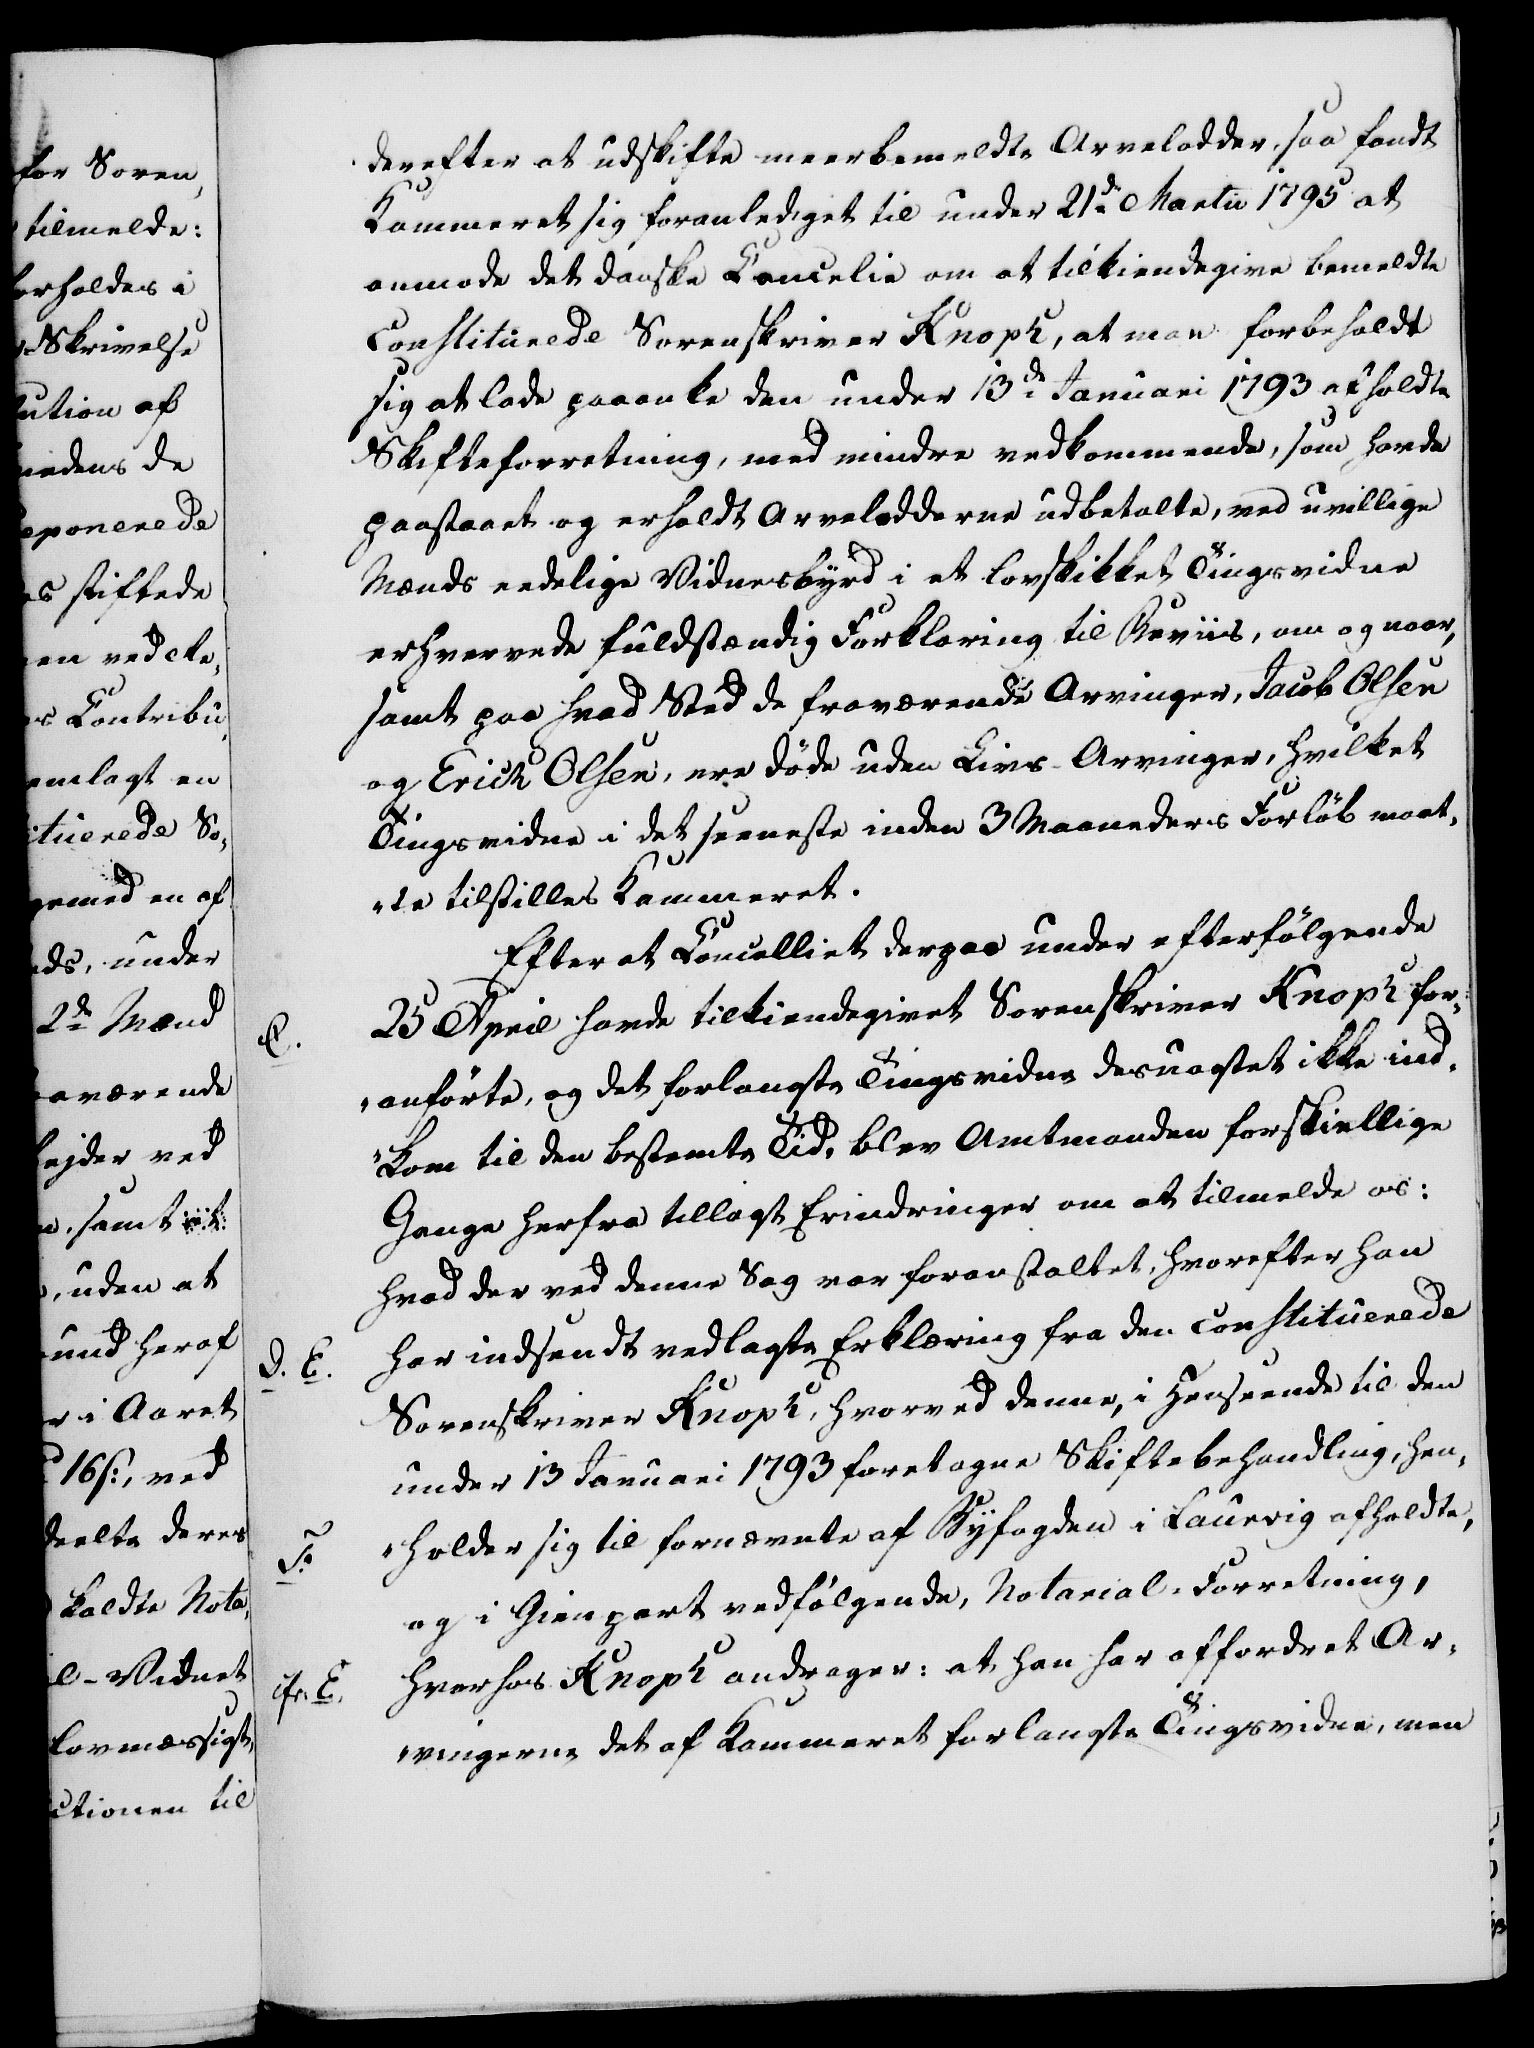 for Soren,
tilmelde:
erholdes i
Skrivelse
ution af
medens de
eponerede
es stiftede
en ved ete,
es Contribu,
emlagt en
ituerede So,
gemed en af
eds, under
2de Mænd
aværende
ejder ved
samt
, uden at
und heraf
r i Aaret
16 s:, ved
deelte deres
kaldte Nota,
l-Vidnet
lovmæssigt,
ctionen til
derefter at udskifte meerbemeldte Arvelodder, saa fandt
Kammeret sig foranlediget til under 21de Martii 1795 at
anmode det danske Cancelie om at tilkiendegive bemeldte
Constituerede Sorenskriver Knoph, at man forbeholdt
sig at lade paaanke den under 13de Januari 1793 afholdte
Skifteforretning, med mindre vedkommende, som havde
paastaaet og erholdt Arvelodderne udbetalte, ved uvillige
Mænds eedelige Vidnesbyrd i et lovskikket Tingsvidne
erhvervede fuldstændig Forklaring til Beviis, om og naar,
samt paa hvad Sted de fraværende Arvinger, Jacob Olsen
og Erich Olsen, ere döde uden Livs-Arvinger, hvilket
Tingsvidne i det seeneste inden 3 Maaneders Forlöb maat,
„te tilstilles Kammeret.
Efter at Cancelliet derpaa under efterfölgende
C.
25 April havde tilkiendegivet Sorenskriver Knoph for,
„anförte, og det forlangte Tingsvidne desuagtet ikke ind,
„kom til den bestemte Tid, blev Amtmanden forskiellige
Gange herfra tillagt Erindringer om at tilmelde os:
hvad der ved denne Sag var foranstaltet, hvorefter han
D. E.
har indsendt vedlagte Erklæring fra den constituerede
Sorenskriver Knoph, hvorved denne, i Henseende til den
under 13 Januari 1793 foretagne Skiftebehandling, hen,
F.
„holder sig til fornævnte af Byfogden i Laurvig afholdte,
og i Gienpart vedfölgende, Notarial-Forretning,
cfr. E.
hvorhos Knoph andrager: at han har affordret Ar,
„vingerne det af Kammeret forlangte Tingsvidne, men